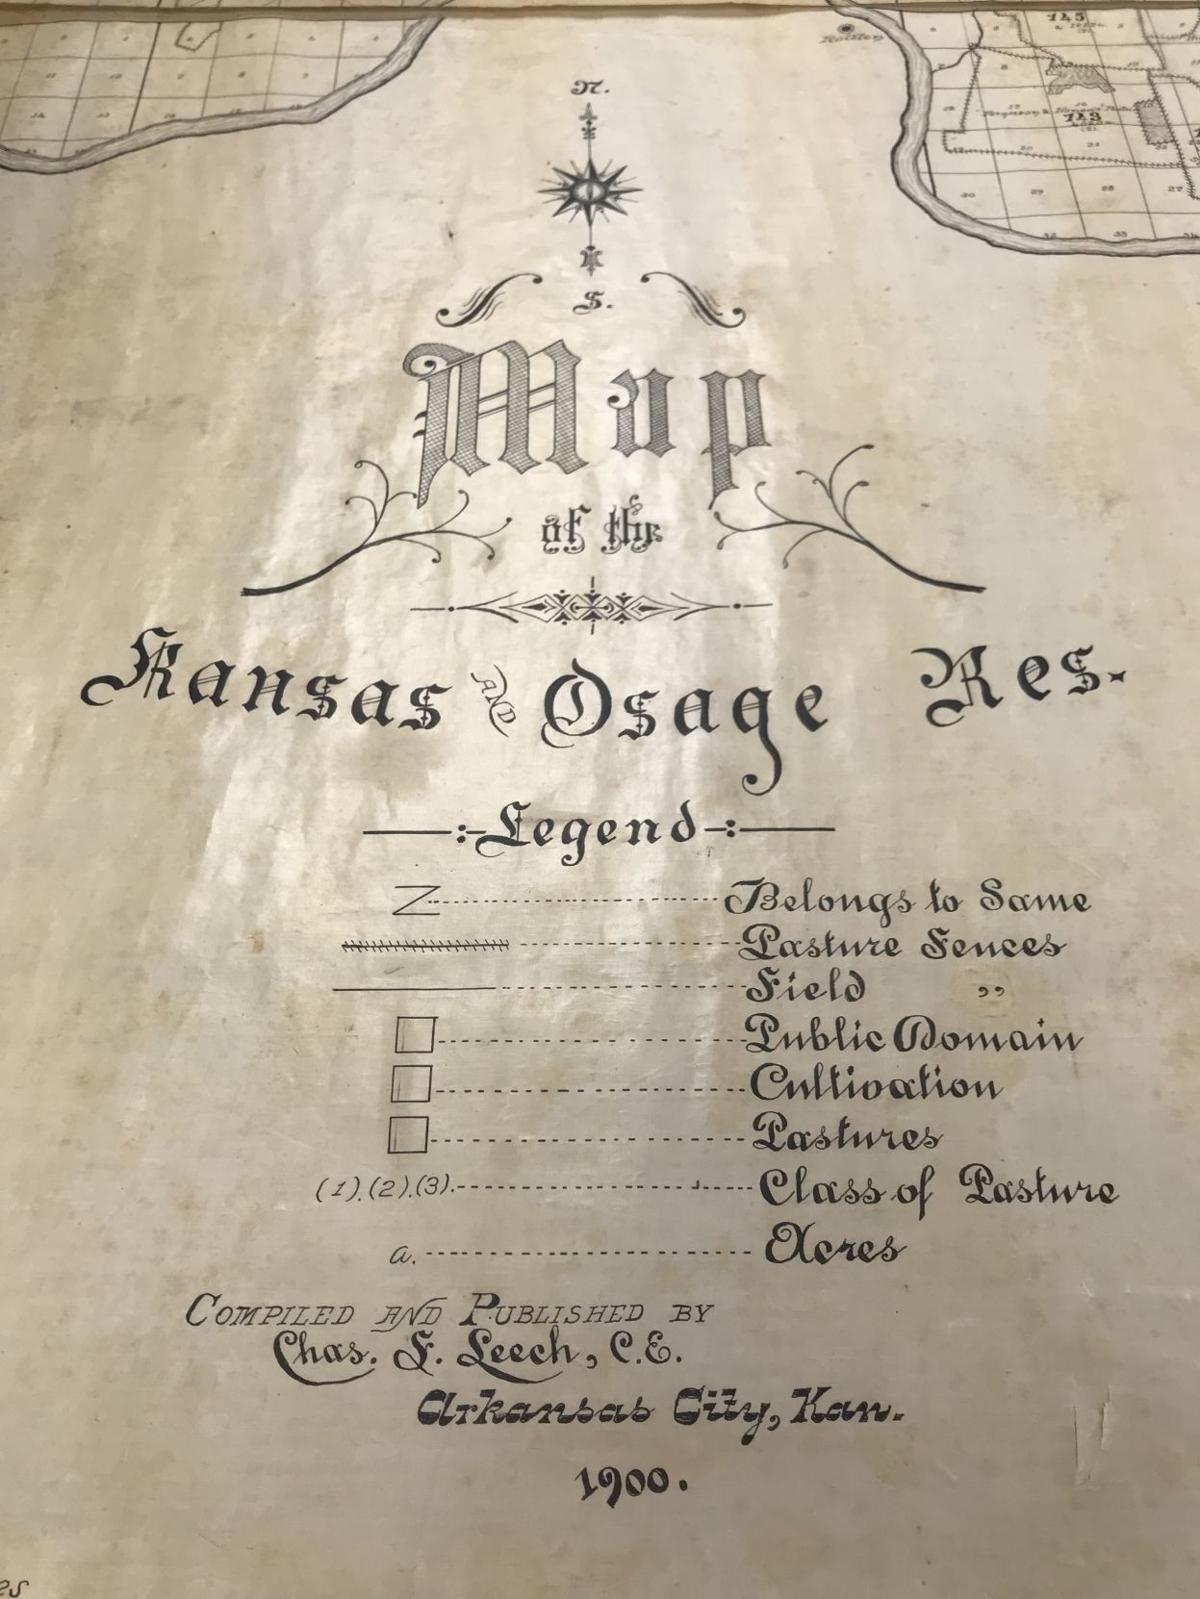 N.
S.
Map
of the
Kansas AND Osage Res.
Legend
Z Belongs to Same
Pasture Fences
Field "
Public Domain
Cultivation
Pastures
(1).(2).(3). Class of Pasture
a. Acres
COMPILED AND PUBLISHED BY
Chas. F. Leech, C.E.
Arkansas City, Kan.
1900.